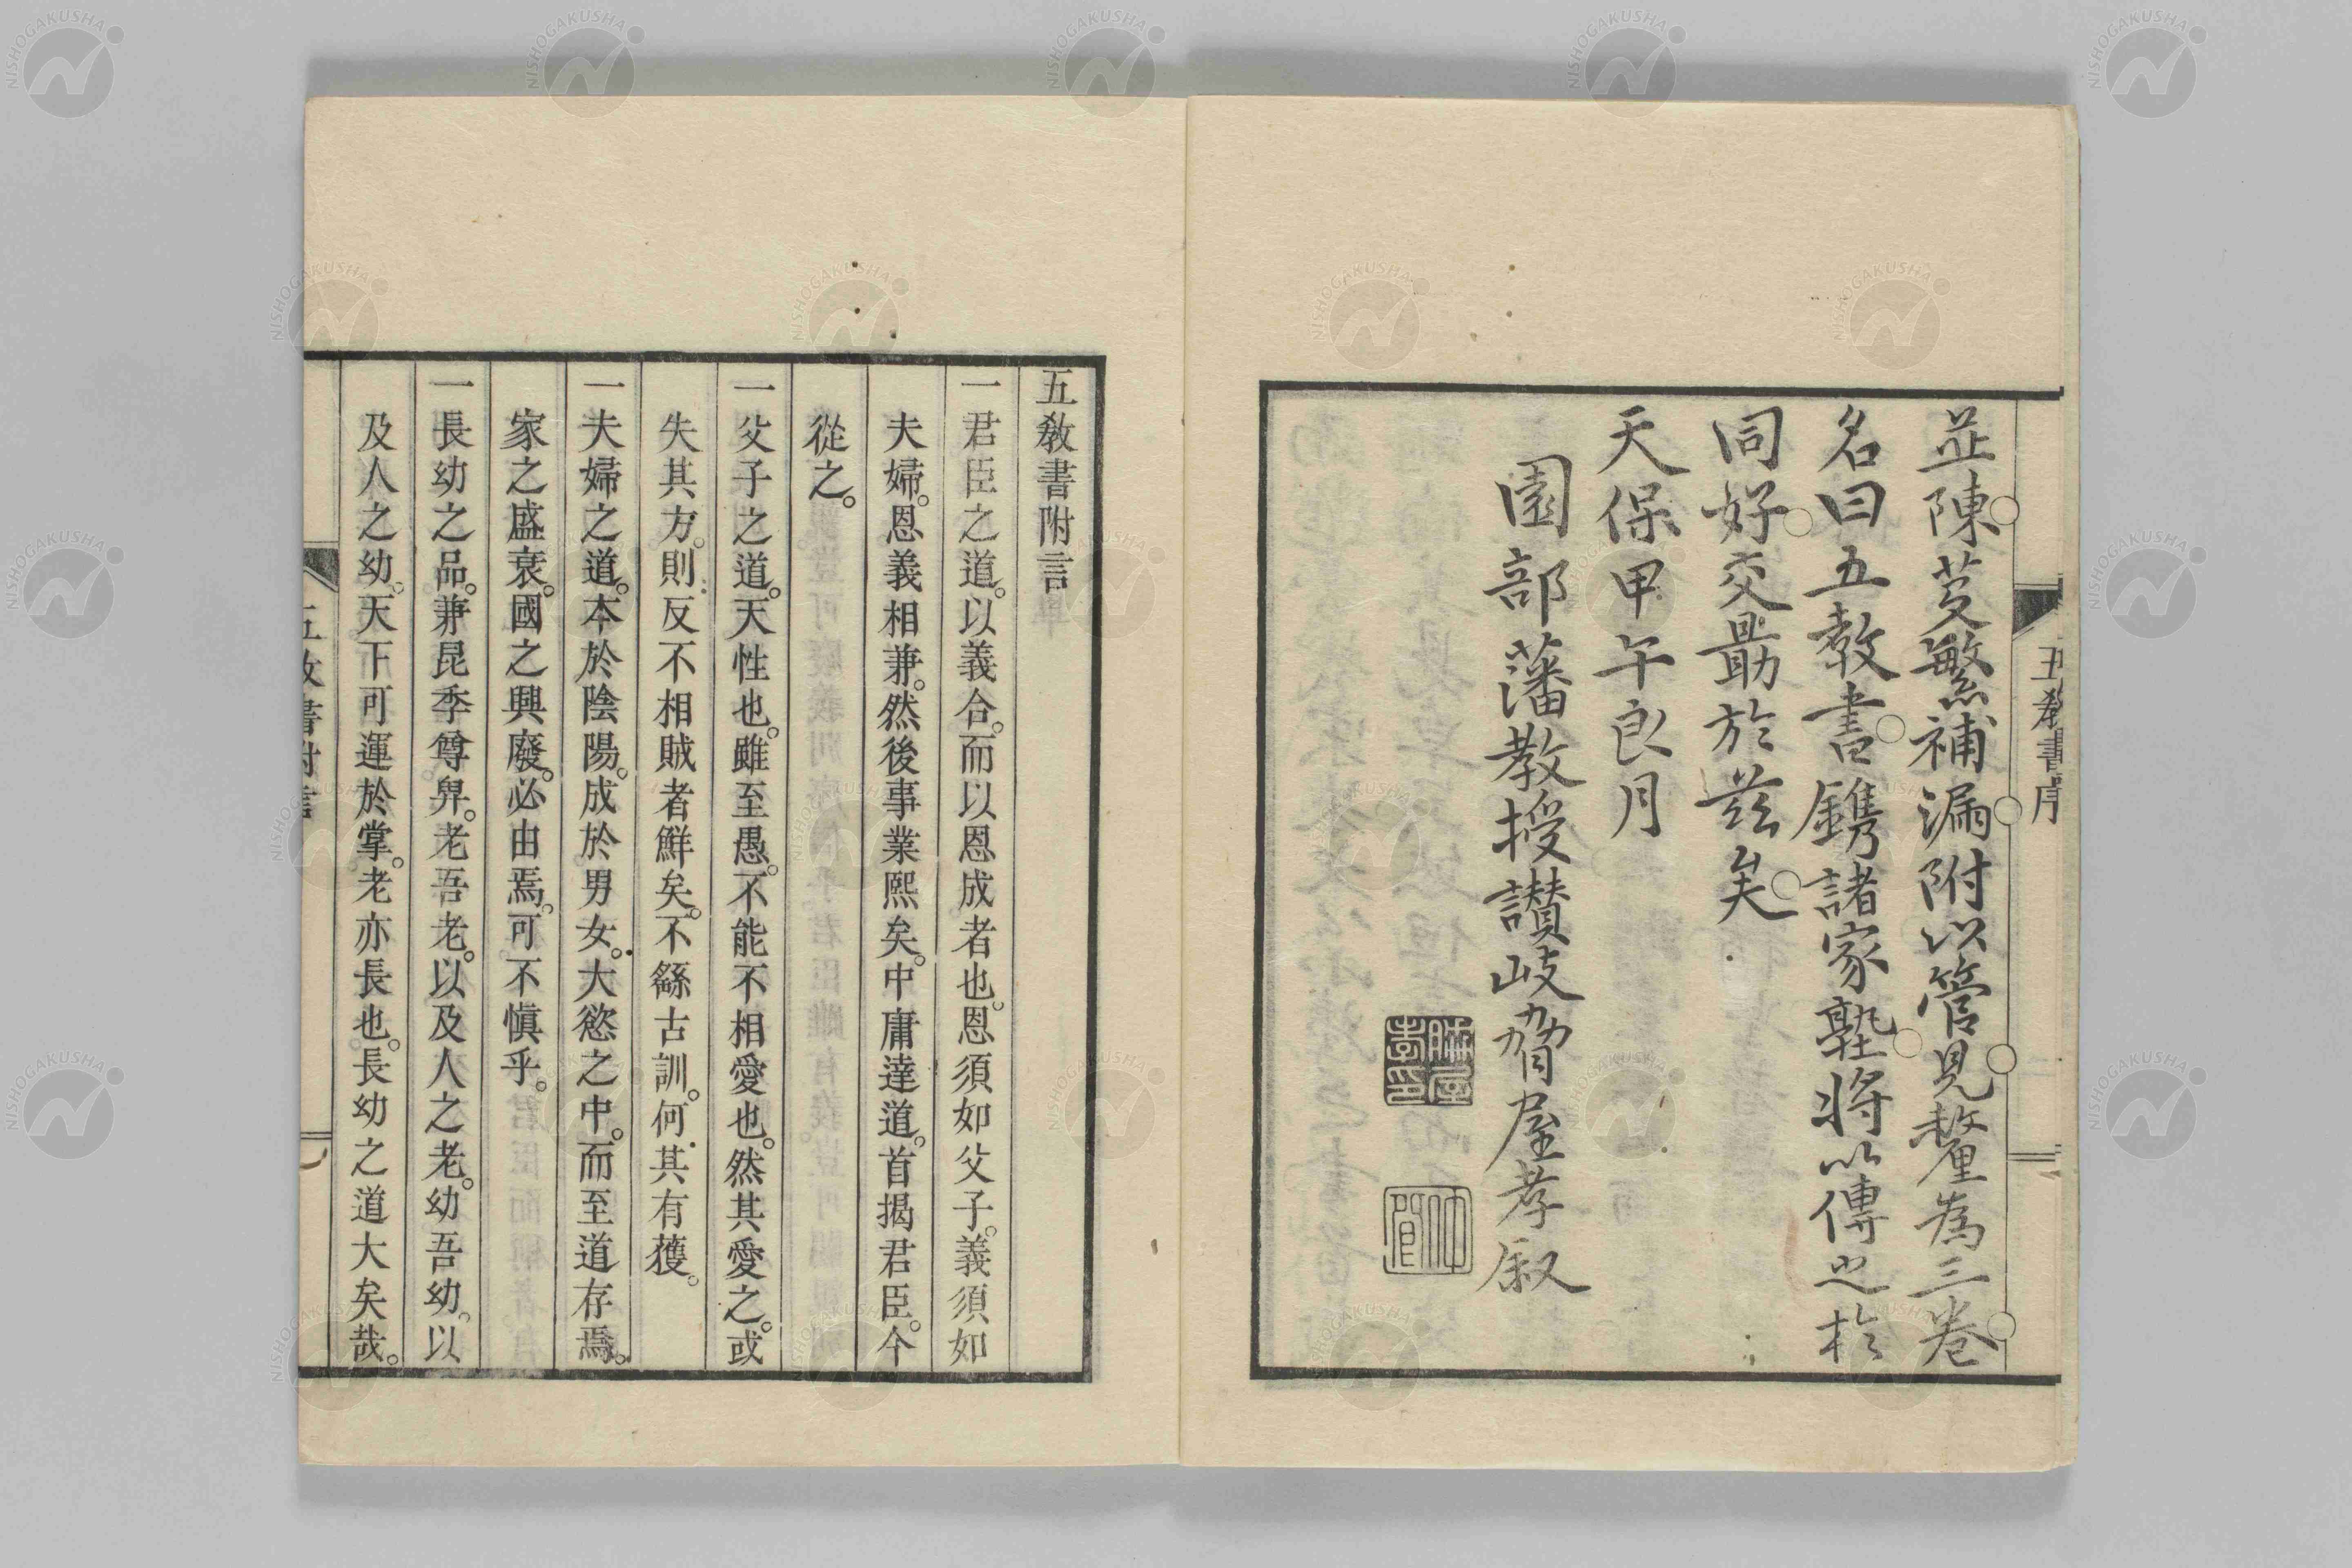 五教書序
並陳芟繁補漏附以管見釐為三卷
名曰五教書鐫諸家塾將以傳之於
同好交勖於茲矣
天保甲午良月
園部藩教授讃岐脅屋孝叙
五教書附言
一君臣之道。以義合。而以恩成者也。恩須如父子。義須如
夫婦。恩義相兼。然後事業熙矣。中庸達道。首揭君臣。今
從之。
一父子之道。天性也。雖至愚。不能不相愛也。然其愛之。或
失其方。則反不相賊者鮮矣。不繇古訓。何其有獲。
一夫婦之道。本於陰陽。成於男女。大慾之中。而至道存焉。
家之盛衰。國之興廢。必由焉。可不愼乎。
一長幼之品。兼昆季尊卑。老吾老。以及人之老。幼吾幼。以
及人之幼。天下可運於掌。老亦長也。長幼之道大矣哉。
五教書附言
NISHOGAKUSHA